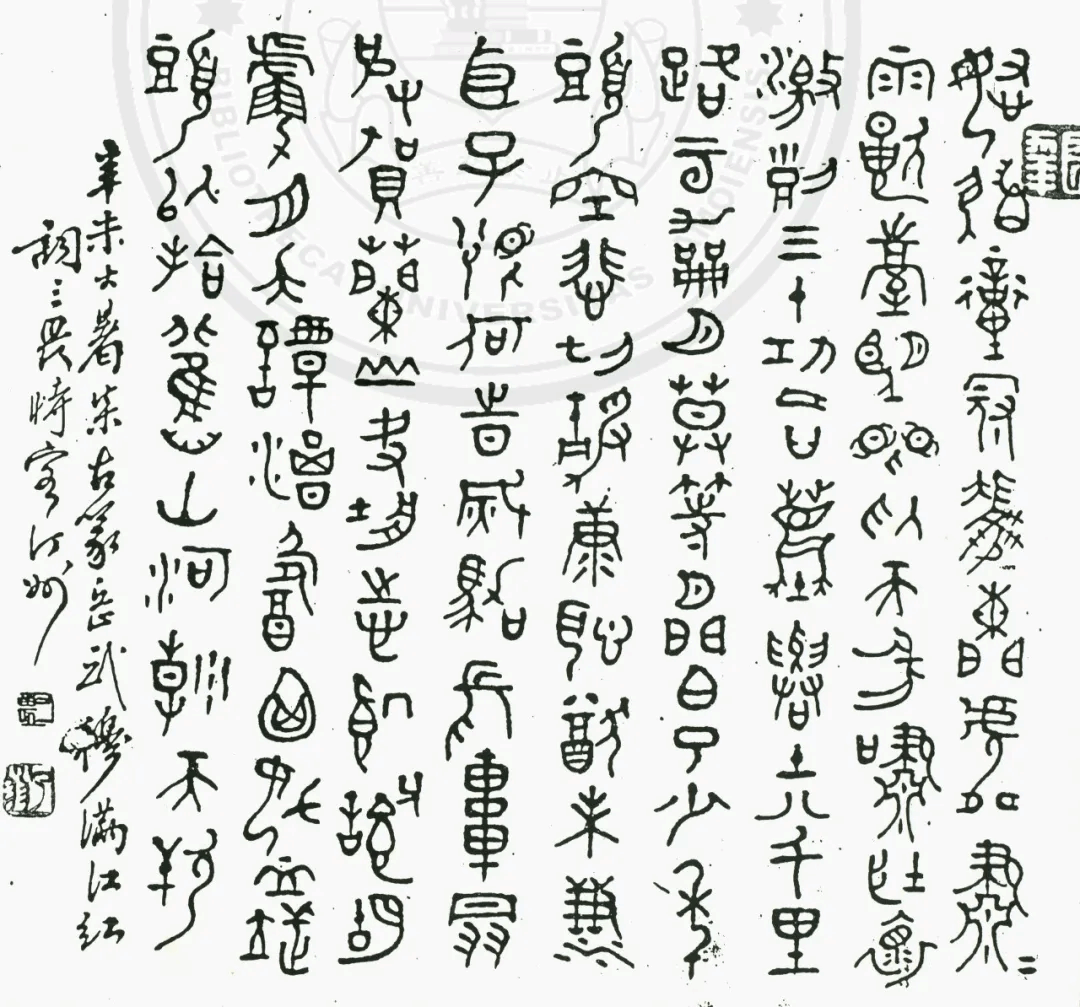 怒髮衝冠憑闌處瀟瀟
雨歇擡望眼仰天長嘯壯懷
激烈三十功名塵與土八千里
路雲和月莫等閒白了少年
頭空悲切靖康恥猶未雪
臣子恨何時滅駕長車踏
破賀蘭山缺壯志飢餐胡
虜肉笑談渴飲匈奴血待從
頭收拾舊山河朝天闕
辛未大暑集古篆岳武穆滿江紅
詞三畏時客汀州